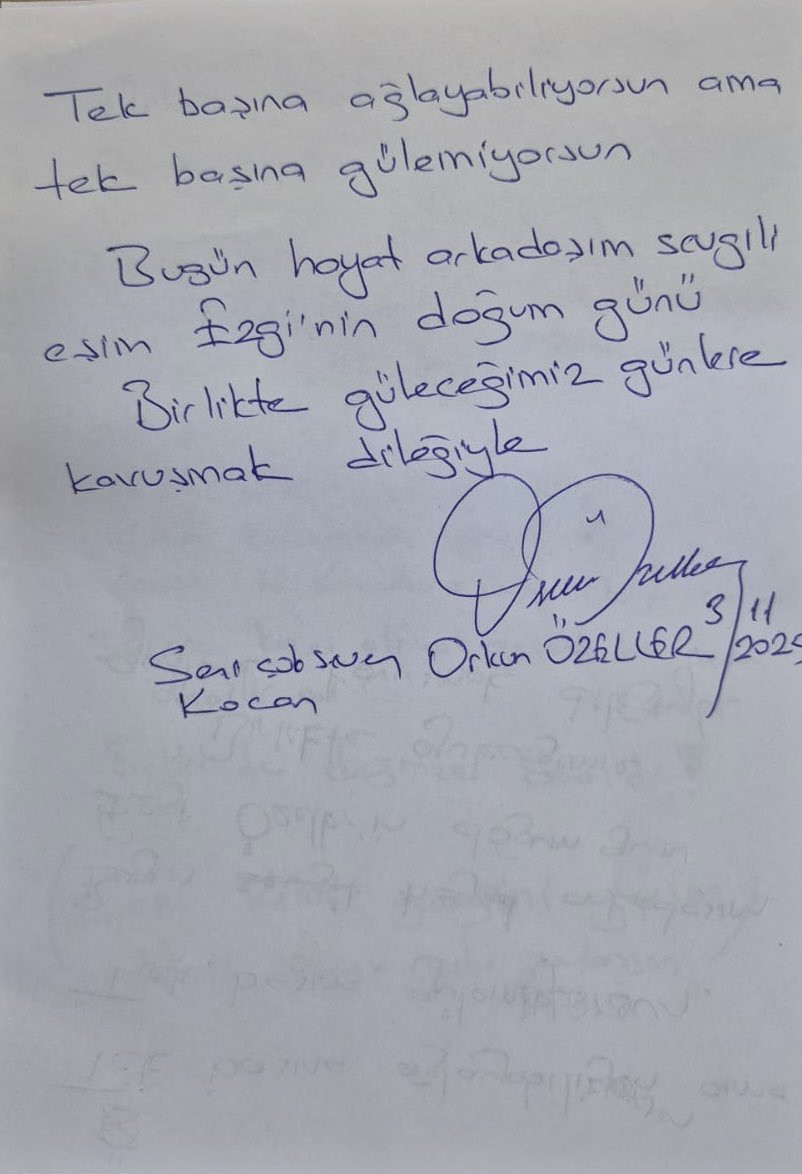 Tek başına ağlayabiliyorsun ama
tek başına gülemiyorsun
Bugün hayat arkadaşım sevgili
eşim Ezgi'nin doğum günü
Birlikte güleceğimiz günlere
kavuşmak dileğiyle
3/11
Seni çok seven Orkun ÖZELLER 2025
Kocan